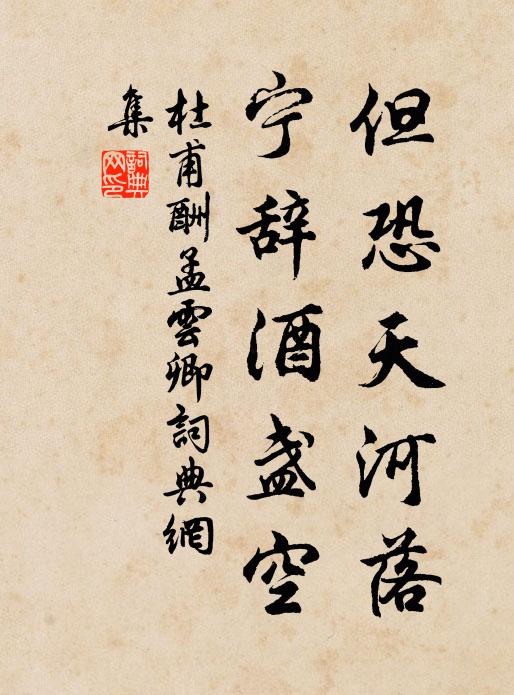 但恐天河落
宁辞酒盏空
杜甫酬孟雲卿詞典網
集
詞典网印